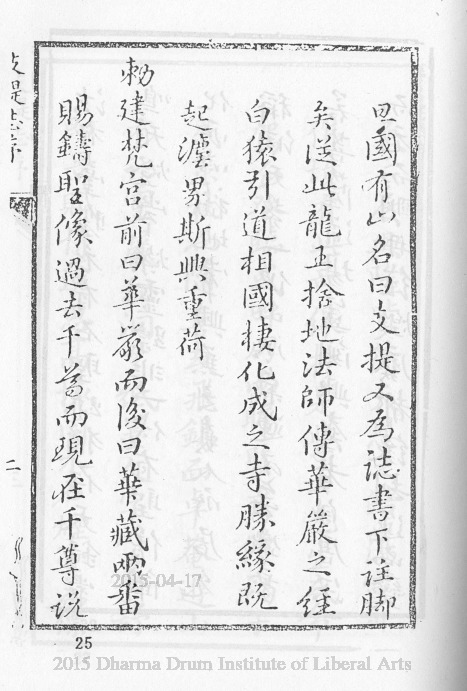 旦國有山名曰支提又為誌書下註脚
矣從此龍王捨地法師傳華嚴之經
白猿引道相國捿化成之寺勝緣既
起瀍男斯興重荷
勅建梵宫前曰華嚴而後曰華藏兩畨
賜鑄聖像過去千尊而現在千尊説
支提志序
二
2015-04-17
25
2015 Dharma Drum Institute of Liberal Arts